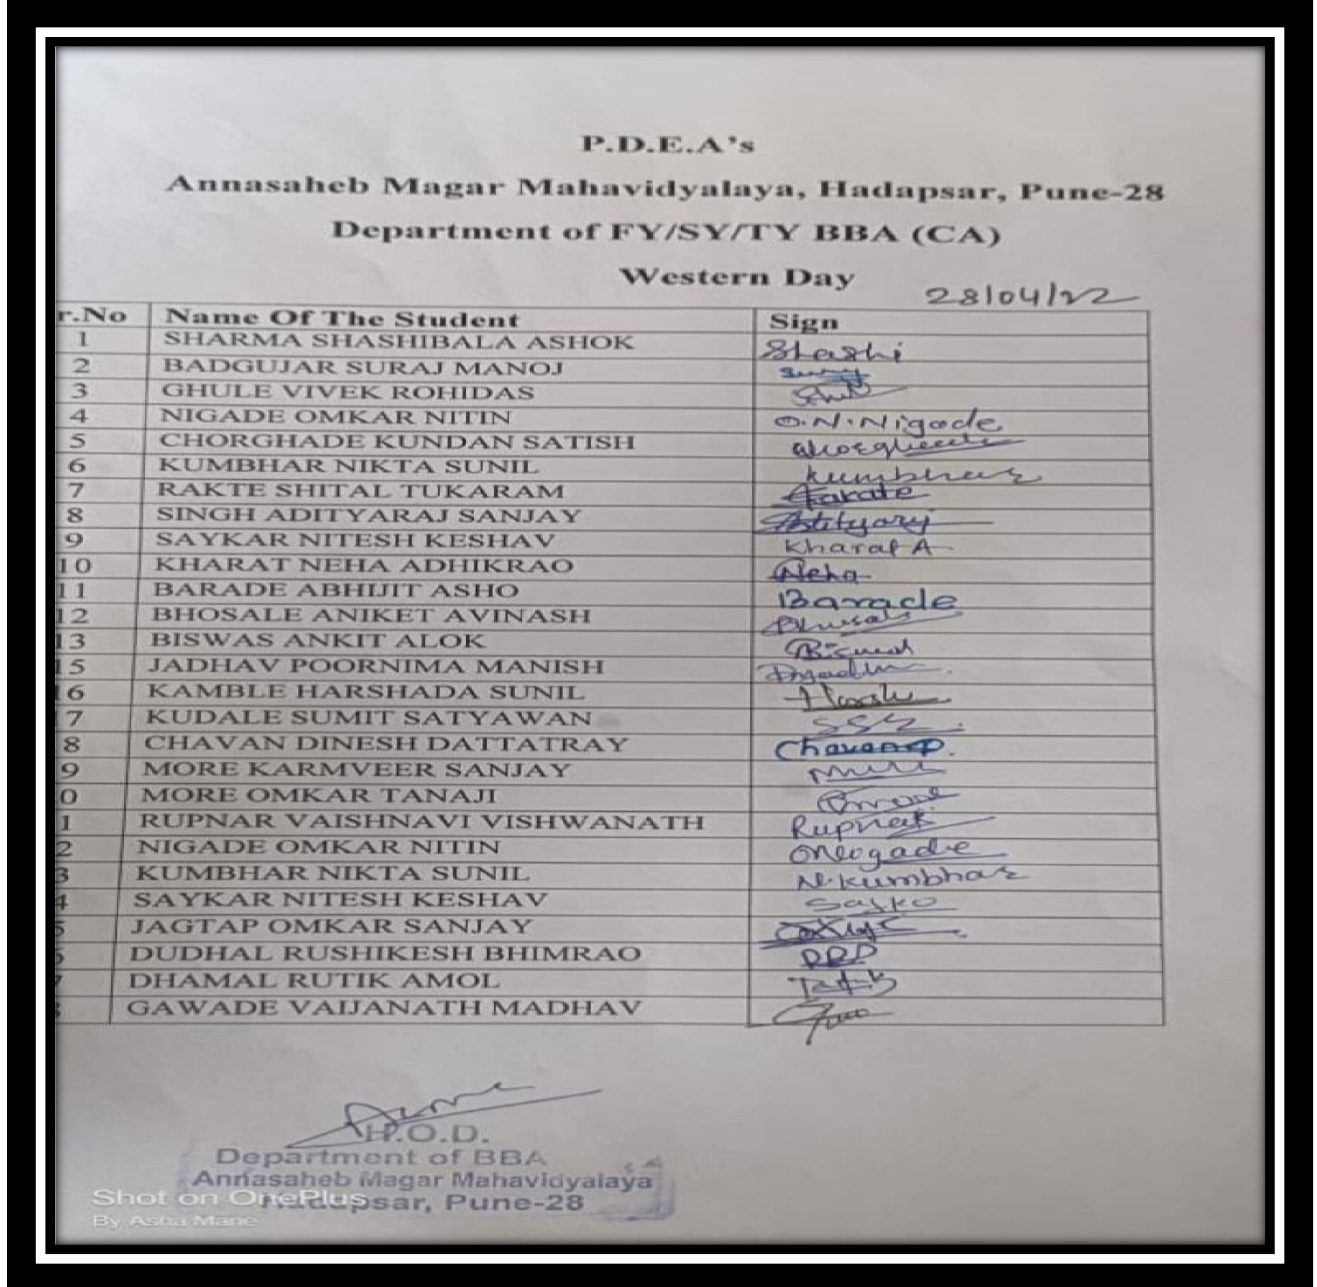 P.D.E.A's
Annasaheb Magar Mahavidyalaya, Hadapsar, Pune-28
Department of FY/SY/TY BBA (CA)
Western Day
28/04/22
r.No Name Of The Student Sign
1 SHARMA SHASHIBALA ASHOK Shashi
2 BADGUJAR SURAJ MANOJ
3 GHULE VIVEK ROHIDAS
4 NIGADE OMKAR NITIN O.N.Nigade
5 CHORGHADE KUNDAN SATISH
6 KUMBHAR NIKTA SUNIL Kumbhar
7 RAKTE SHITAL TUKARAM
8 SINGH ADITYARAJ SANJAY
9 SAYKAR NITESH KESHAV Kharat A
10 KHARAT NEHA ADHIKRAO Neha
11 BARADE ABHIJIT ASHO Barade
12 BHOSALE ANIKET AVINASH
13 BISWAS ANKIT ALOK
15 JADHAV POORNIMA MANISH
6 KAMBLE HARSHADA SUNIL
7 KUDALE SUMIT SATYAWAN
8 CHAVAN DINESH DATTATRAY
9 MORE KARMVEER SANJAY
0 MORE OMKAR TANAJI
1 RUPNAR VAISHNAVI VISHWANATH Rupnar
2 NIGADE OMKAR NITIN
3 KUMBHAR NIKTA SUNIL N.Kumbhar
4 SAYKAR NITESH KESHAV
5 JAGTAP OMKAR SANJAY
DUDHAL RUSHIKESH BHIMRAO
DHAMAL RUTIK AMOL
GAWADE VAIJANATH MADHAV
H.O.D.
Department of BBA
Annasaheb Magar Mahavidyalaya
Hadapsar, Pune-28
Shot on OnePlus
By Asha Mane